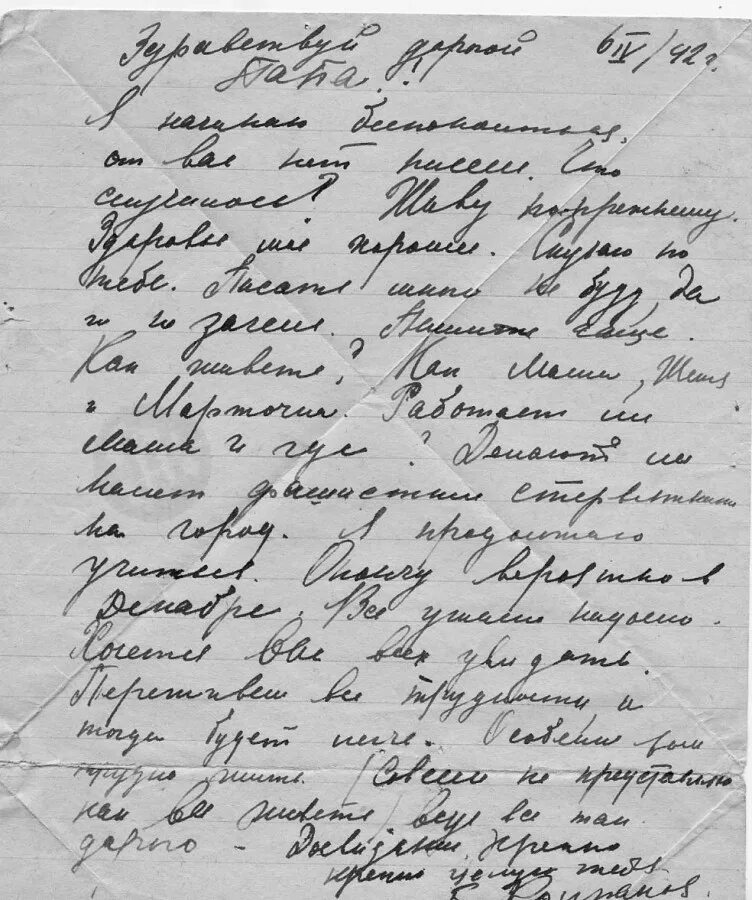 Здравствуй дорогой 6/IV/42 г.
Папа!
Я начинаю беспокоиться,
от вас нет писем. Что
случилось? Живу по-прежнему.
Здоровье мое хорошее. Скучаю по
тебе. Писать много не буду, да
и не зачем. Пишите чаще.
Как живете? Как Маша, Женя
и Марточка. Работает ли
Маша и гус? Делают ли
налет фашистские стервятники
на город. Я продолжаю
учиться. Окончу вероятно в
Декабре. Все ужасно надоело.
Хочется Вас всех увидать.
Переживем все трудности и
тогда будет легче. Особенно вам
трудно жить. (Совсем не представляю
как вы живете) ведь все так
дорого – Досвидания. Крепко
крепко целую тебя